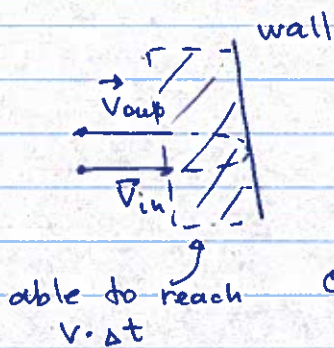 wall
V out
V in
able to reach
v · Δt